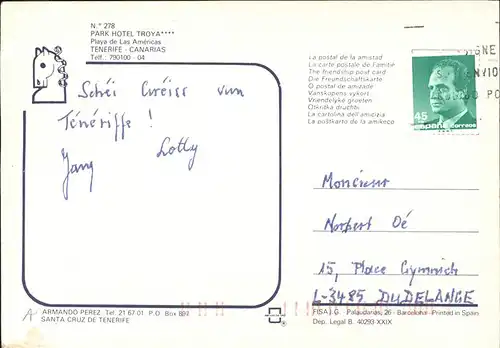 N.° 278
PARK HOTEL TROYA****
Playa de Las Américas
TENERIFE - CANARIAS
Telf.: 790100 - 04
Schéi Gréiss vun
Ténériffe !
Jany Lotty
ARMANDO PEREZ Tel. 21 67 01 P.O. Box 897
SANTA CRUZ DE TENERIFE
La postal de la amistad
La carte postale de l'amitié
The friendship post card
Die Freundschaftskarte
O postal de amizade
Vänskapens vykort
Vriendelijke groeten
Otkritka druzhbi
La cartolina dell'amicizia
La poŝtkarto de la amikeco
45
ESPAÑA correos
Moncieur
Norbert Oé
15, Place Gymnich
L-3485 DUDELANGE
F(ISA).G. - Palaudarias, 26 - Barcelona - Printed in Spain
Dep. Legal B. 40293-XXIX